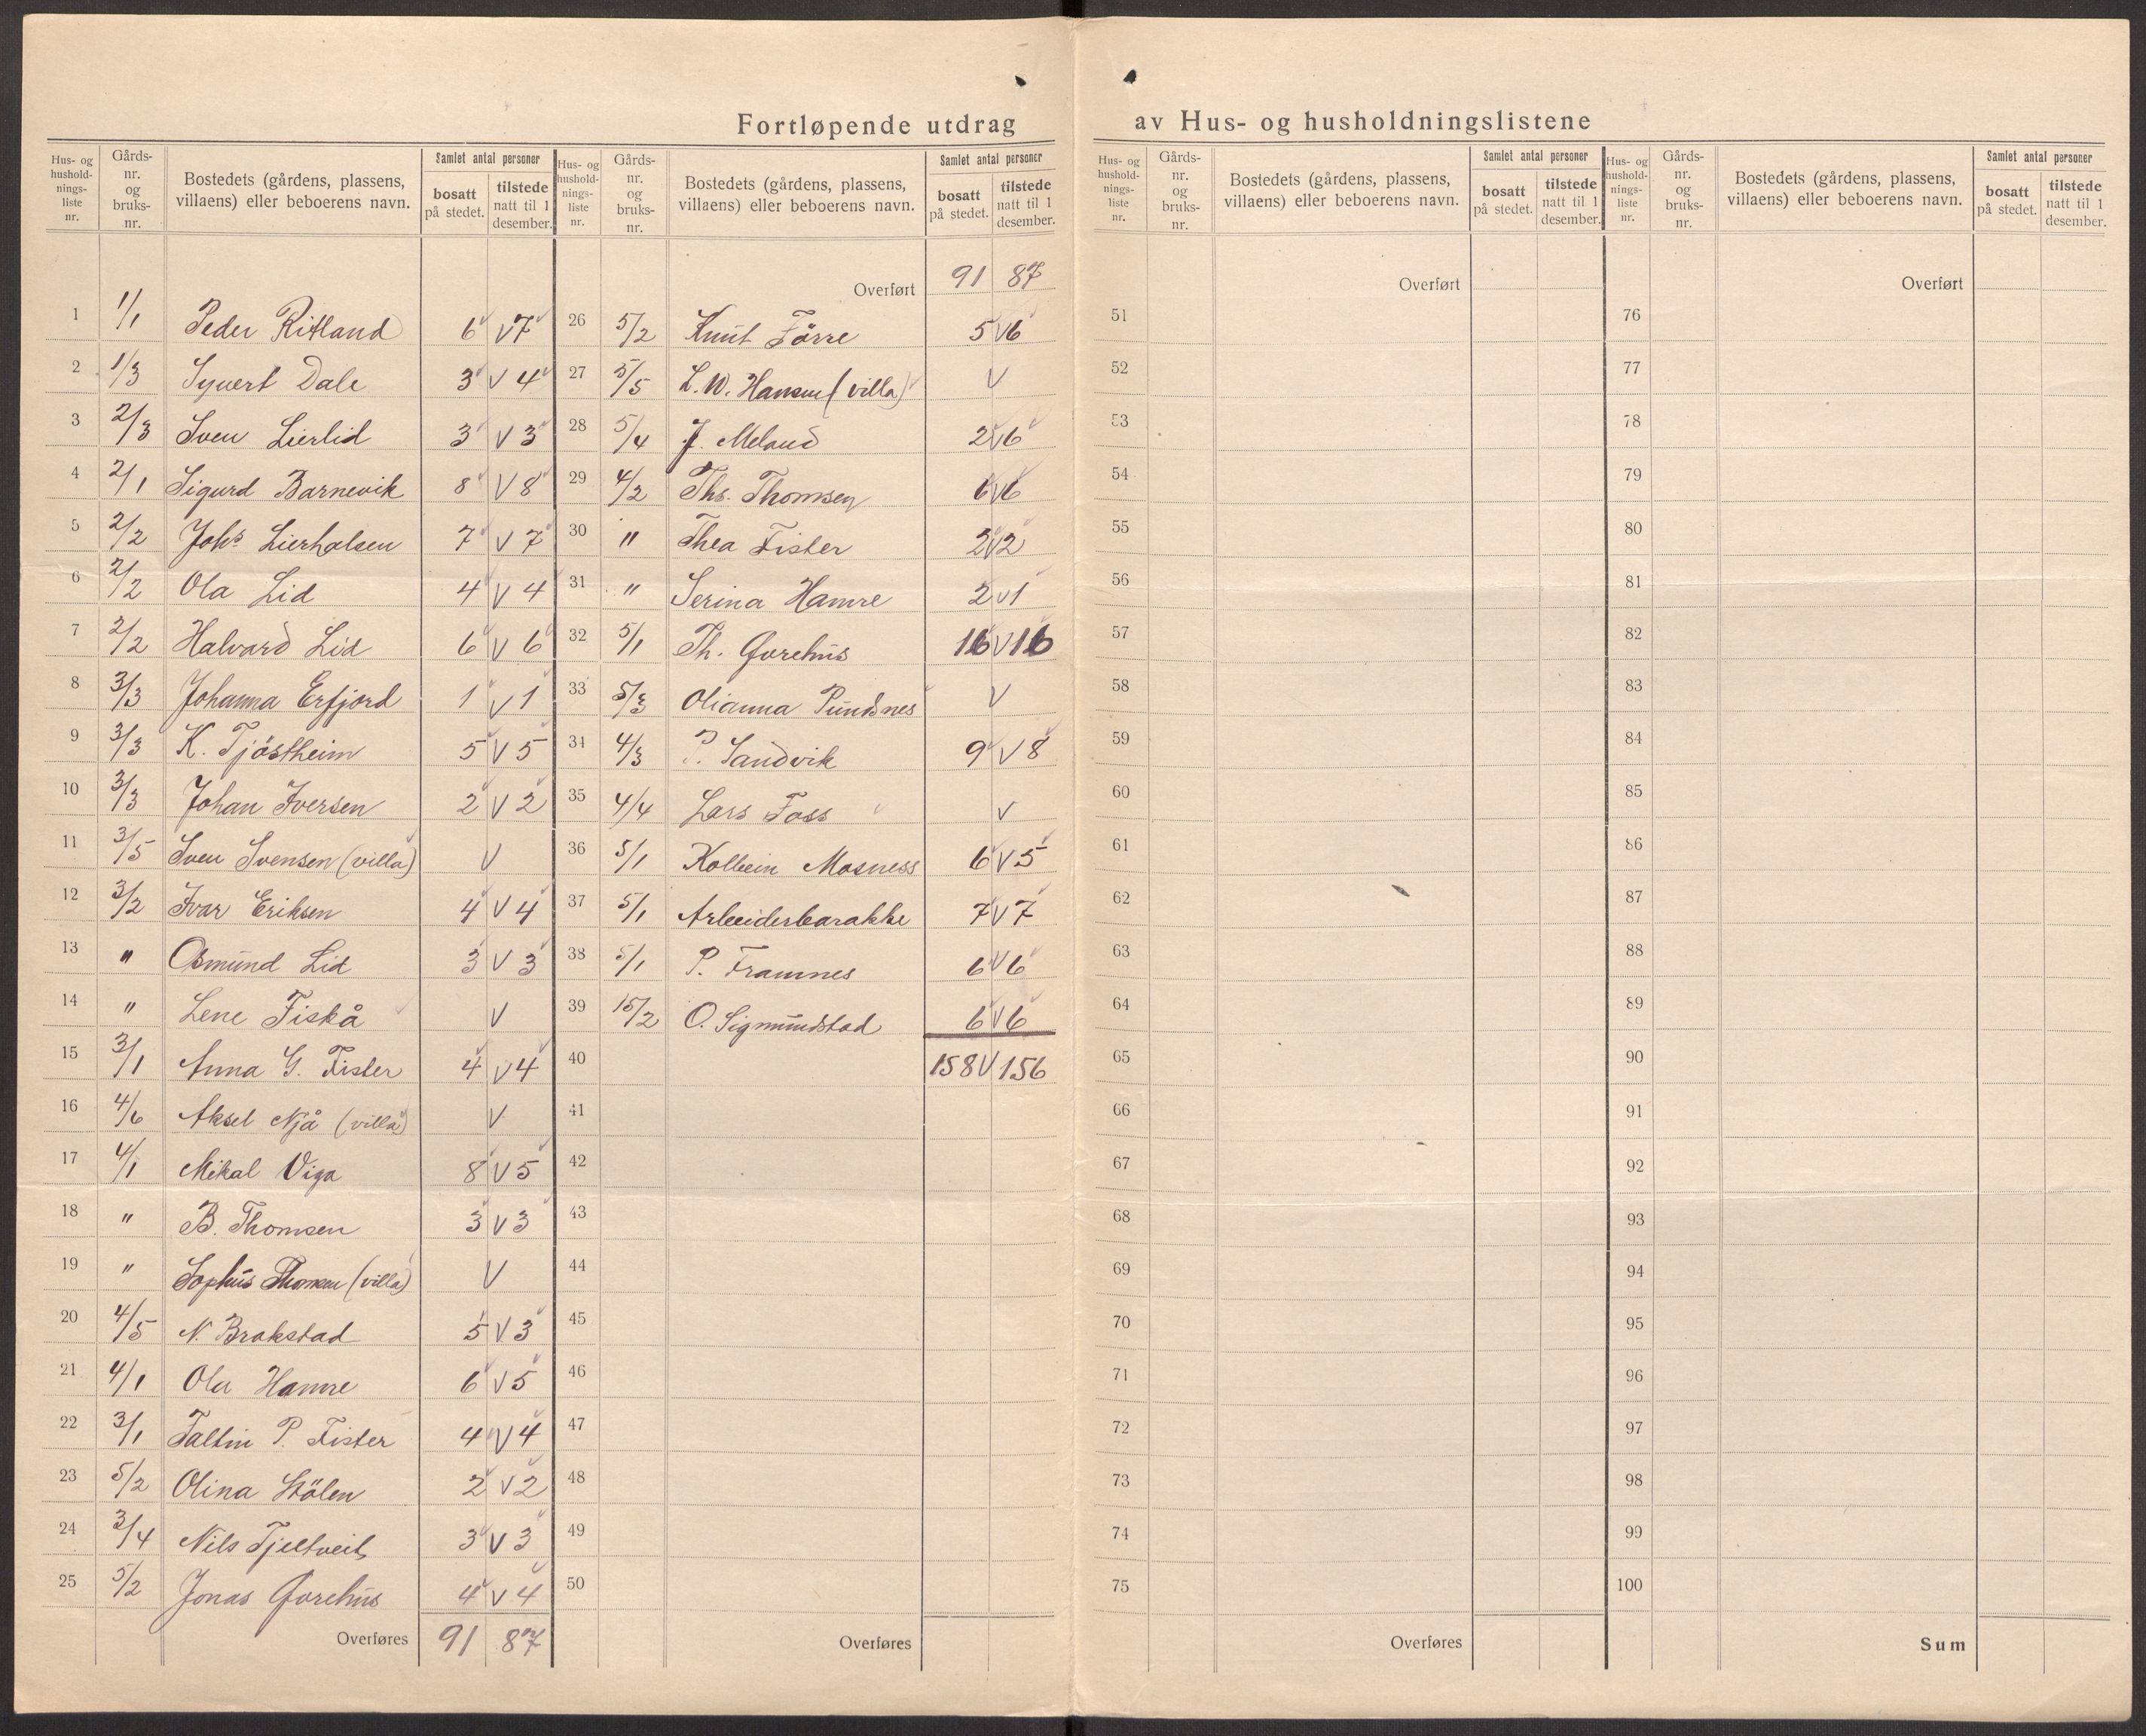 Fortløpende utdrag av Hus- og husholdningslistene
Hus- og hushold-nings-liste nr. | Gårds-nr. og bruks-nr. | Bostedets (gårdens, plassens, villaens) eller beboerens navn. | Samlet antal personer | bosatt på stedet. | tilstede natt til 1 desember.
1 1/1 Peder Ritland 6 V 7
2 1/3 Syvert Dale 3 V 4
3 2/3 Sven Lierlid 3 V 3
4 2/1 Sigurd Barnevik 8 V 8
5 2/2 Johs Lierholsen 7 V 7
6 2/2 Ola Lid 4 V 4
7 2/2 Halvard Lid 6 V 6
8 3/3 Johanna Erfjord 1 V 1
9 3/3 K. Tjöstheim 5 V 5
10 3/3 Johan Iversen 2 V 2
11 3/5 Sven Svensen (villa) V
12 3/2 Ivar Eriksen 4 V 4
13 " Osmund Lid 3 V 3
14 " Lene Fiskå V
15 3/1 Anna G. Fister 4 V 4
16 4/6 Aksel Njå (villa) V
17 4/1 Mikal Viga 8 V 5
18 " B. Thomsen 3 V 3
19 " Sophus Thomsen (villa) V
20 4/5 N. Brakstad 5 V 3
21 4/1 Ola Hamre 6 V 5
22 3/1 Faltin P. Fister 4 V 4
23 5/2 Olina Stölen 2 V 2
24 3/4 Nils Tjeltveit 3 V 3
25 5/2 Jonas Gorehus 4 V 4
Overføres 91 87
Hus- og hushold-nings-liste nr. | Gårds-nr. og bruks-nr. | Bostedets (gårdens, plassens, villaens) eller beboerens navn. | Samlet antal personer | bosatt på stedet. | tilstede natt til 1 desember.
Overført 91 87
26 5/2 Knut Förre 5 V 6
27 5/5 L. W. Hansen (villa) V
28 5/4 J. Meland 2 V 6
29 4/2 Ths. Thomsen 6 V 6
30 " Thea Fister 2 V 2
31 " Serina Hamre 2 V 1
32 5/1 Th. Gorehus 16 V 16
33 5/3 Olianna Pundsnes V
34 4/3 P. Sandvik 9 V 8
35 4/4 Lars Foss V
36 5/1 Kolbein Mosness 6 V 5
37 5/1 Arbeiderbarakke 7 V 7
38 5/1 P. Framnes 6 V 6
39 15/2 O. Sigmundstad 6 V 6
40 158 V 156
41
42
43
44
45
46
47
48
49
50
Overføres
Hus- og hushold-nings-liste nr. | Gårds-nr. og bruks-nr. | Bostedets (gårdens, plassens, villaens) eller beboerens navn. | Samlet antal personer | bosatt på stedet. | tilstede natt til 1 desember.
Overført
51
52
53
54
55
56
57
58
59
60
61
62
63
64
65
66
67
68
69
70
71
72
73
74
75
Overføres
Hus- og hushold-nings-liste nr. | Gårds-nr. og bruks-nr. | Bostedets (gårdens, plassens, villaens) eller beboerens navn. | Samlet antal personer | bosatt på stedet. | tilstede natt til 1 desember.
Overført
76
77
78
79
80
81
82
83
84
85
86
87
88
89
90
91
92
93
94
95
96
97
98
99
100
Sum